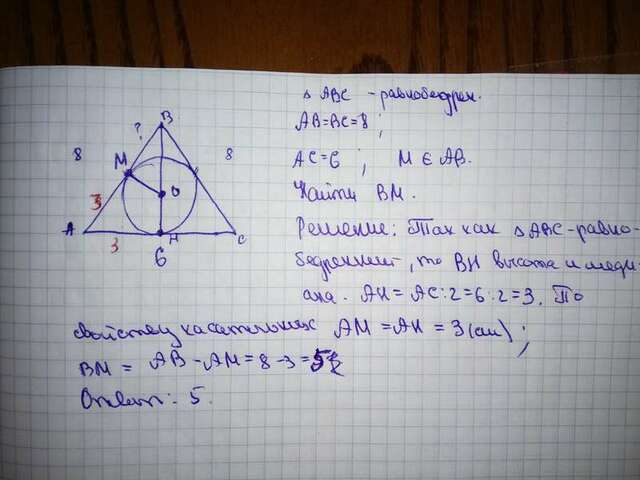 B
?
8
8
M
O
3
A
3
H
C
6
△ ABC - равнобедрен.
AB=BC=8 ;
AC=6 ; M ∈ AB.
Найти BM.
Решение: Так как △ ABC-равно-
бедренный, то BH высота и меди-
ана. AH = AC:2=6:2=3. По
свойству касательных AM = AH = 3(см);
BM = AB - AM = 8 - 3 = 5
Ответ: 5.